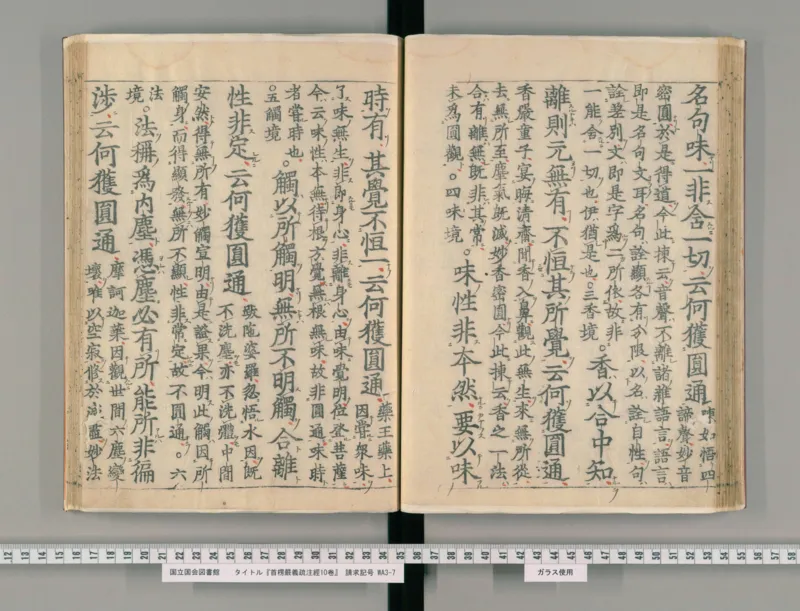 名句味一非含一切云何獲圓通
㤭如悟四
諦聲妙音
密圓於是得道今此揀云音聲不離諸雜語言語言
即是名句文耳名句詮顯各有分限以名詮自性句
詮差別文即是字爲二所依故非
一能含一切也伊猶是也三香境
香以合中知
離則元無有不恒其所覺云何獲圓通
香嚴童子宴晦清齋聞香入鼻觀此無生來無所從
去無所至塵氣既滅妙香密圓今此揀云香之一法
合有離無既非其常
未爲圓觀四味境
味性非本然要以味
時有其覺不恒一云何獲圓通
藥王藥上
因甞衆味
了味無生非即身心非離身心由味覺明位登菩薩
今云味性本無待根方覺無根無味故非圓通味時
者當時也
五觸境
觸以所觸明無所不明觸合離
性非定云何獲圓通
跋陀婆羅忽悟水因既
不洗塵亦不洗體中間
安然得無所有妙觸宣明由是證果今明此觸因所
觸身而得顯發無所不顯性非常定故不圓通六
法
境
法稱爲内塵憑塵必有所能所非徧
涉云何獲圓通
摩訶迦葉因觀世間六塵變
壞唯以空寂修於滅盡妙法
国立国会図書館 タイトル『首楞嚴義疏注經10巻』 請求記号 WA3-7
ガラス使用